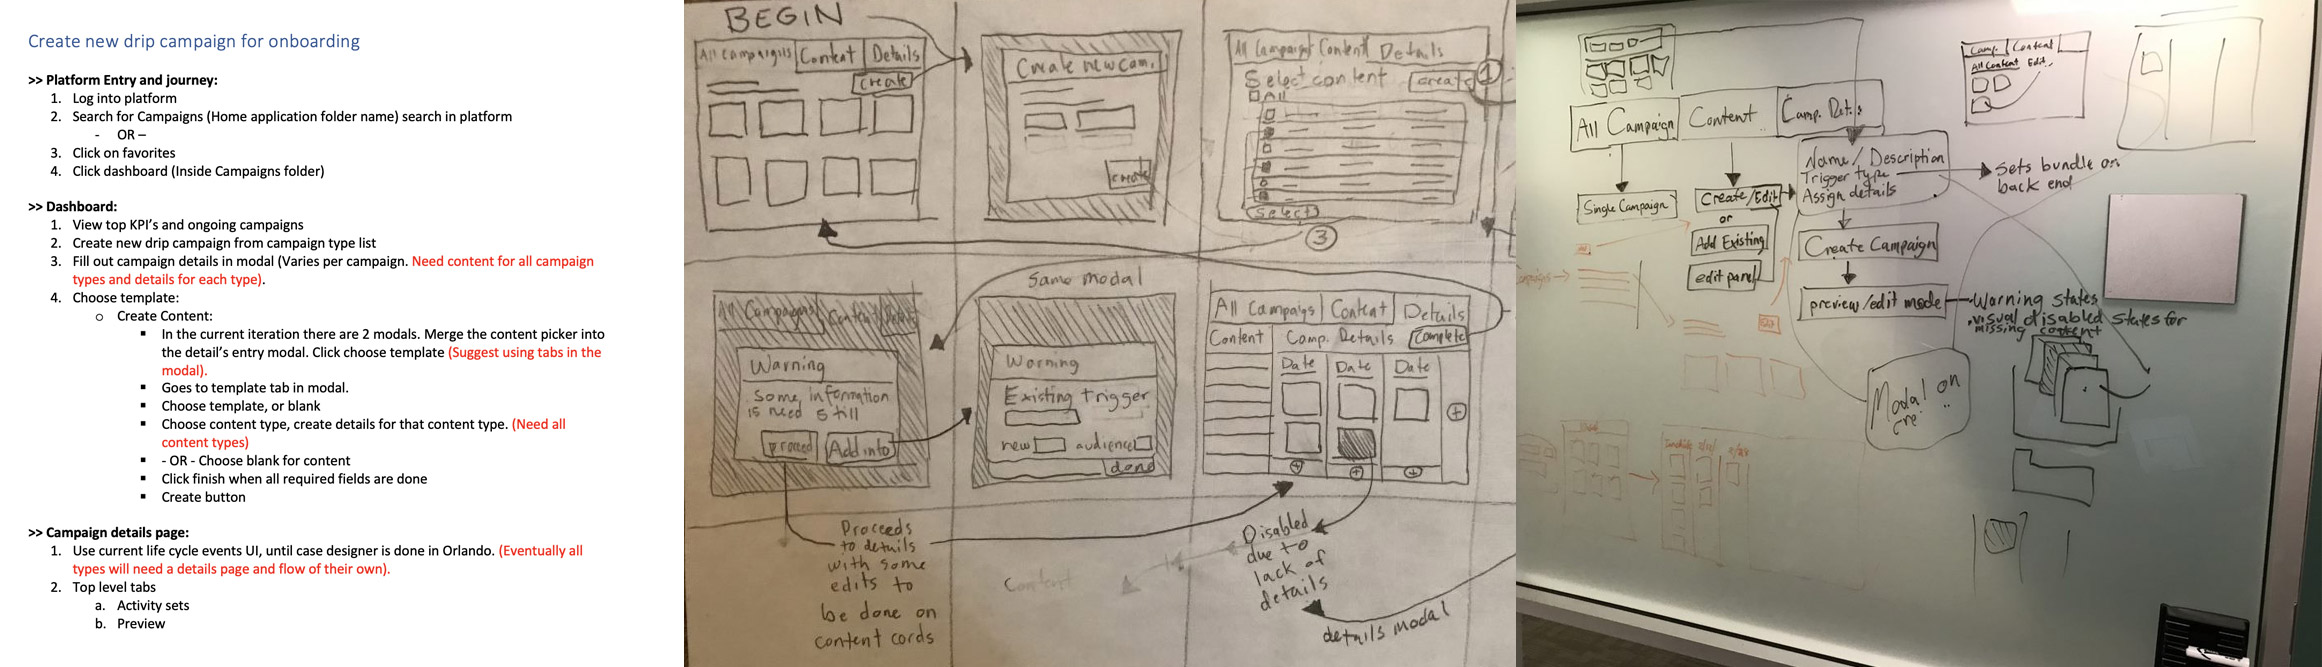 Create new drip campaign for onboarding
>> Platform Entry and journey:
1. Log into platform
2. Search for Campaigns (Home application folder name) search in platform
- OR –
3. Click on favorites
4. Click dashboard (Inside Campaigns folder)
>> Dashboard:
1. View top KPI's and ongoing campaigns
2. Create new drip campaign from campaign type list
3. Fill out campaign details in modal (Varies per campaign. Need content for all campaign
types and details for each type).
4. Choose template:
o Create Content:
▪ In the current iteration there are 2 modals. Merge the content picker into
the detail's entry modal. Click choose template (Suggest using tabs in the
modal).
▪ Goes to template tab in modal.
▪ Choose template, or blank
▪ Choose content type, create details for that content type. (Need all
content types)
▪ - OR - Choose blank for content
▪ Click finish when all required fields are done
▪ Create button
>> Campaign details page:
1. Use current life cycle events UI, until case designer is done in Orlando. (Eventually all
types will need a details page and flow of their own).
2. Top level tabs
a. Activity sets
b. Preview
BEGIN
All campaigns Content Details
Create
Create new cam.
Create
All Campaign Content Details
Select content Create
1
All
Select
3
Same modal
All Campaigns Content Details
Warning
Some information
is need still
proceed Add info
Warning
Existing trigger
new audience
done
All Campaigs Content Details
Content Comp. Details Complete
Date Date Date
Proceeds
to details
with some
edits to
be done on
content cords
Content
Disabled
due to
lack of
details
details modal
All Campaign Content Camp. Det.s
Single Campaign
Create/Edit
or
Add Existing
edit panel
Name/Description
Trigger type
Assign details
Sets bundle on
back end
Create Campaign
preview/edit mode
Warning states
.visual disabled states for
missing content
Modal on
Camp. Content
All Content Edit